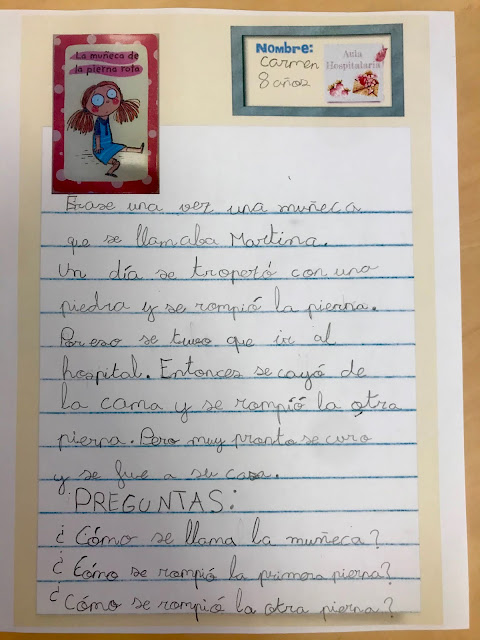 La muñeca de
la pierna rota
Nombre:
Carmen
8 años
Aula
Hospitalaria
Erase una vez una muñeca
que se llamaba Martina.
Un día se tropezó con una
piedra y se rompió la pierna.
Por eso se tuvo que ir al
hospital. Entonces se cayó de
la cama y se rompió la otra
pierna. Pero muy pronto se curo
y se fue a su casa.
PREGUNTAS:
¿Cómo se llama la muñeca?
¿Cómo se rompió la primera pierna?
¿Cómo se rompió la otra pierna?